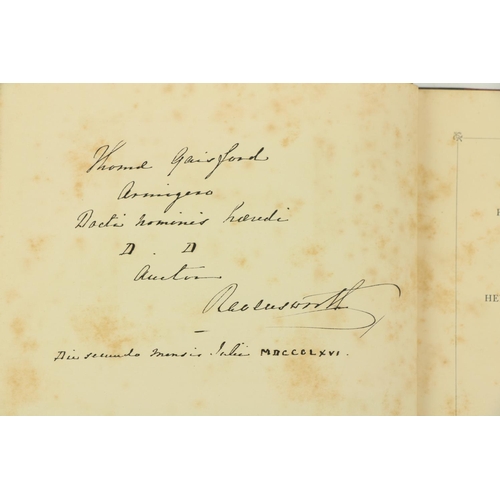 Thomæ Gaisford
Armigero
Docti nominis hæredi
D . D
Auctor
Ravensworth
Die secundo mensis Julii MDCCCLXVI.
HE